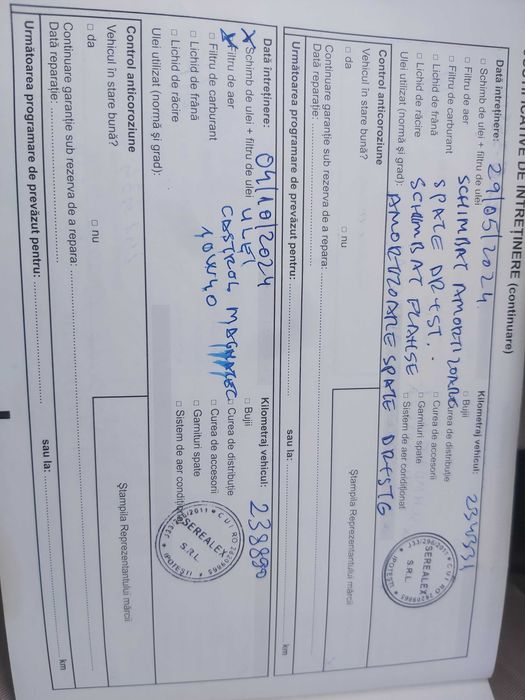 DE ÎNTREȚINERE (continuare)
Data întreținere: 29/05/2024 Kilometraj vehicul:
□ Schimb de ulei + filtru de ulei
□ Bujii
□ Filtru de aer SCHIMBAT AMORTIZOARE
□ Curea de distribuție
□ Filtru de carburant
□ Curea de accesorii
□ Lichid de frână SPATE DR+ST.
□ Garnituri spate
□ Lichid de răcire SCHIMBAT FLANSE
□ Sistem de aer condiționat
Ulei utilizat (normă și grad): AMORTIZOARE SPATE DR+STG
SEREALEX
S.R.L.
Control anticoroziune
Vehicul în stare bună?
□ da □ nu
Ștampila Reprezentantului mărcii
Continuare garanție sub rezerva de a repara:
Data reparație:
Următoarea programare de prevăzut pentru: sau la: km
Data întreținere: 04/10/2024 Kilometraj vehicul: 238890
X Schimb de ulei + filtru de ulei ULEI
□ Bujii
X Filtru de aer CASTROL MAGNATEC
□ Curea de distribuție
□ Filtru de carburant 10W40
□ Curea de accesorii
□ Lichid de frână
□ Garnituri spate
□ Lichid de răcire
□ Sistem de aer condiționat
Ulei utilizat (normă și grad):
SEREALEX
S.R.L.
Control anticoroziune
Vehicul în stare bună?
□ da □ nu
Ștampila Reprezentantului mărcii
Continuare garanție sub rezerva de a repara:
Data reparație:
Următoarea programare de prevăzut pentru: sau la: km